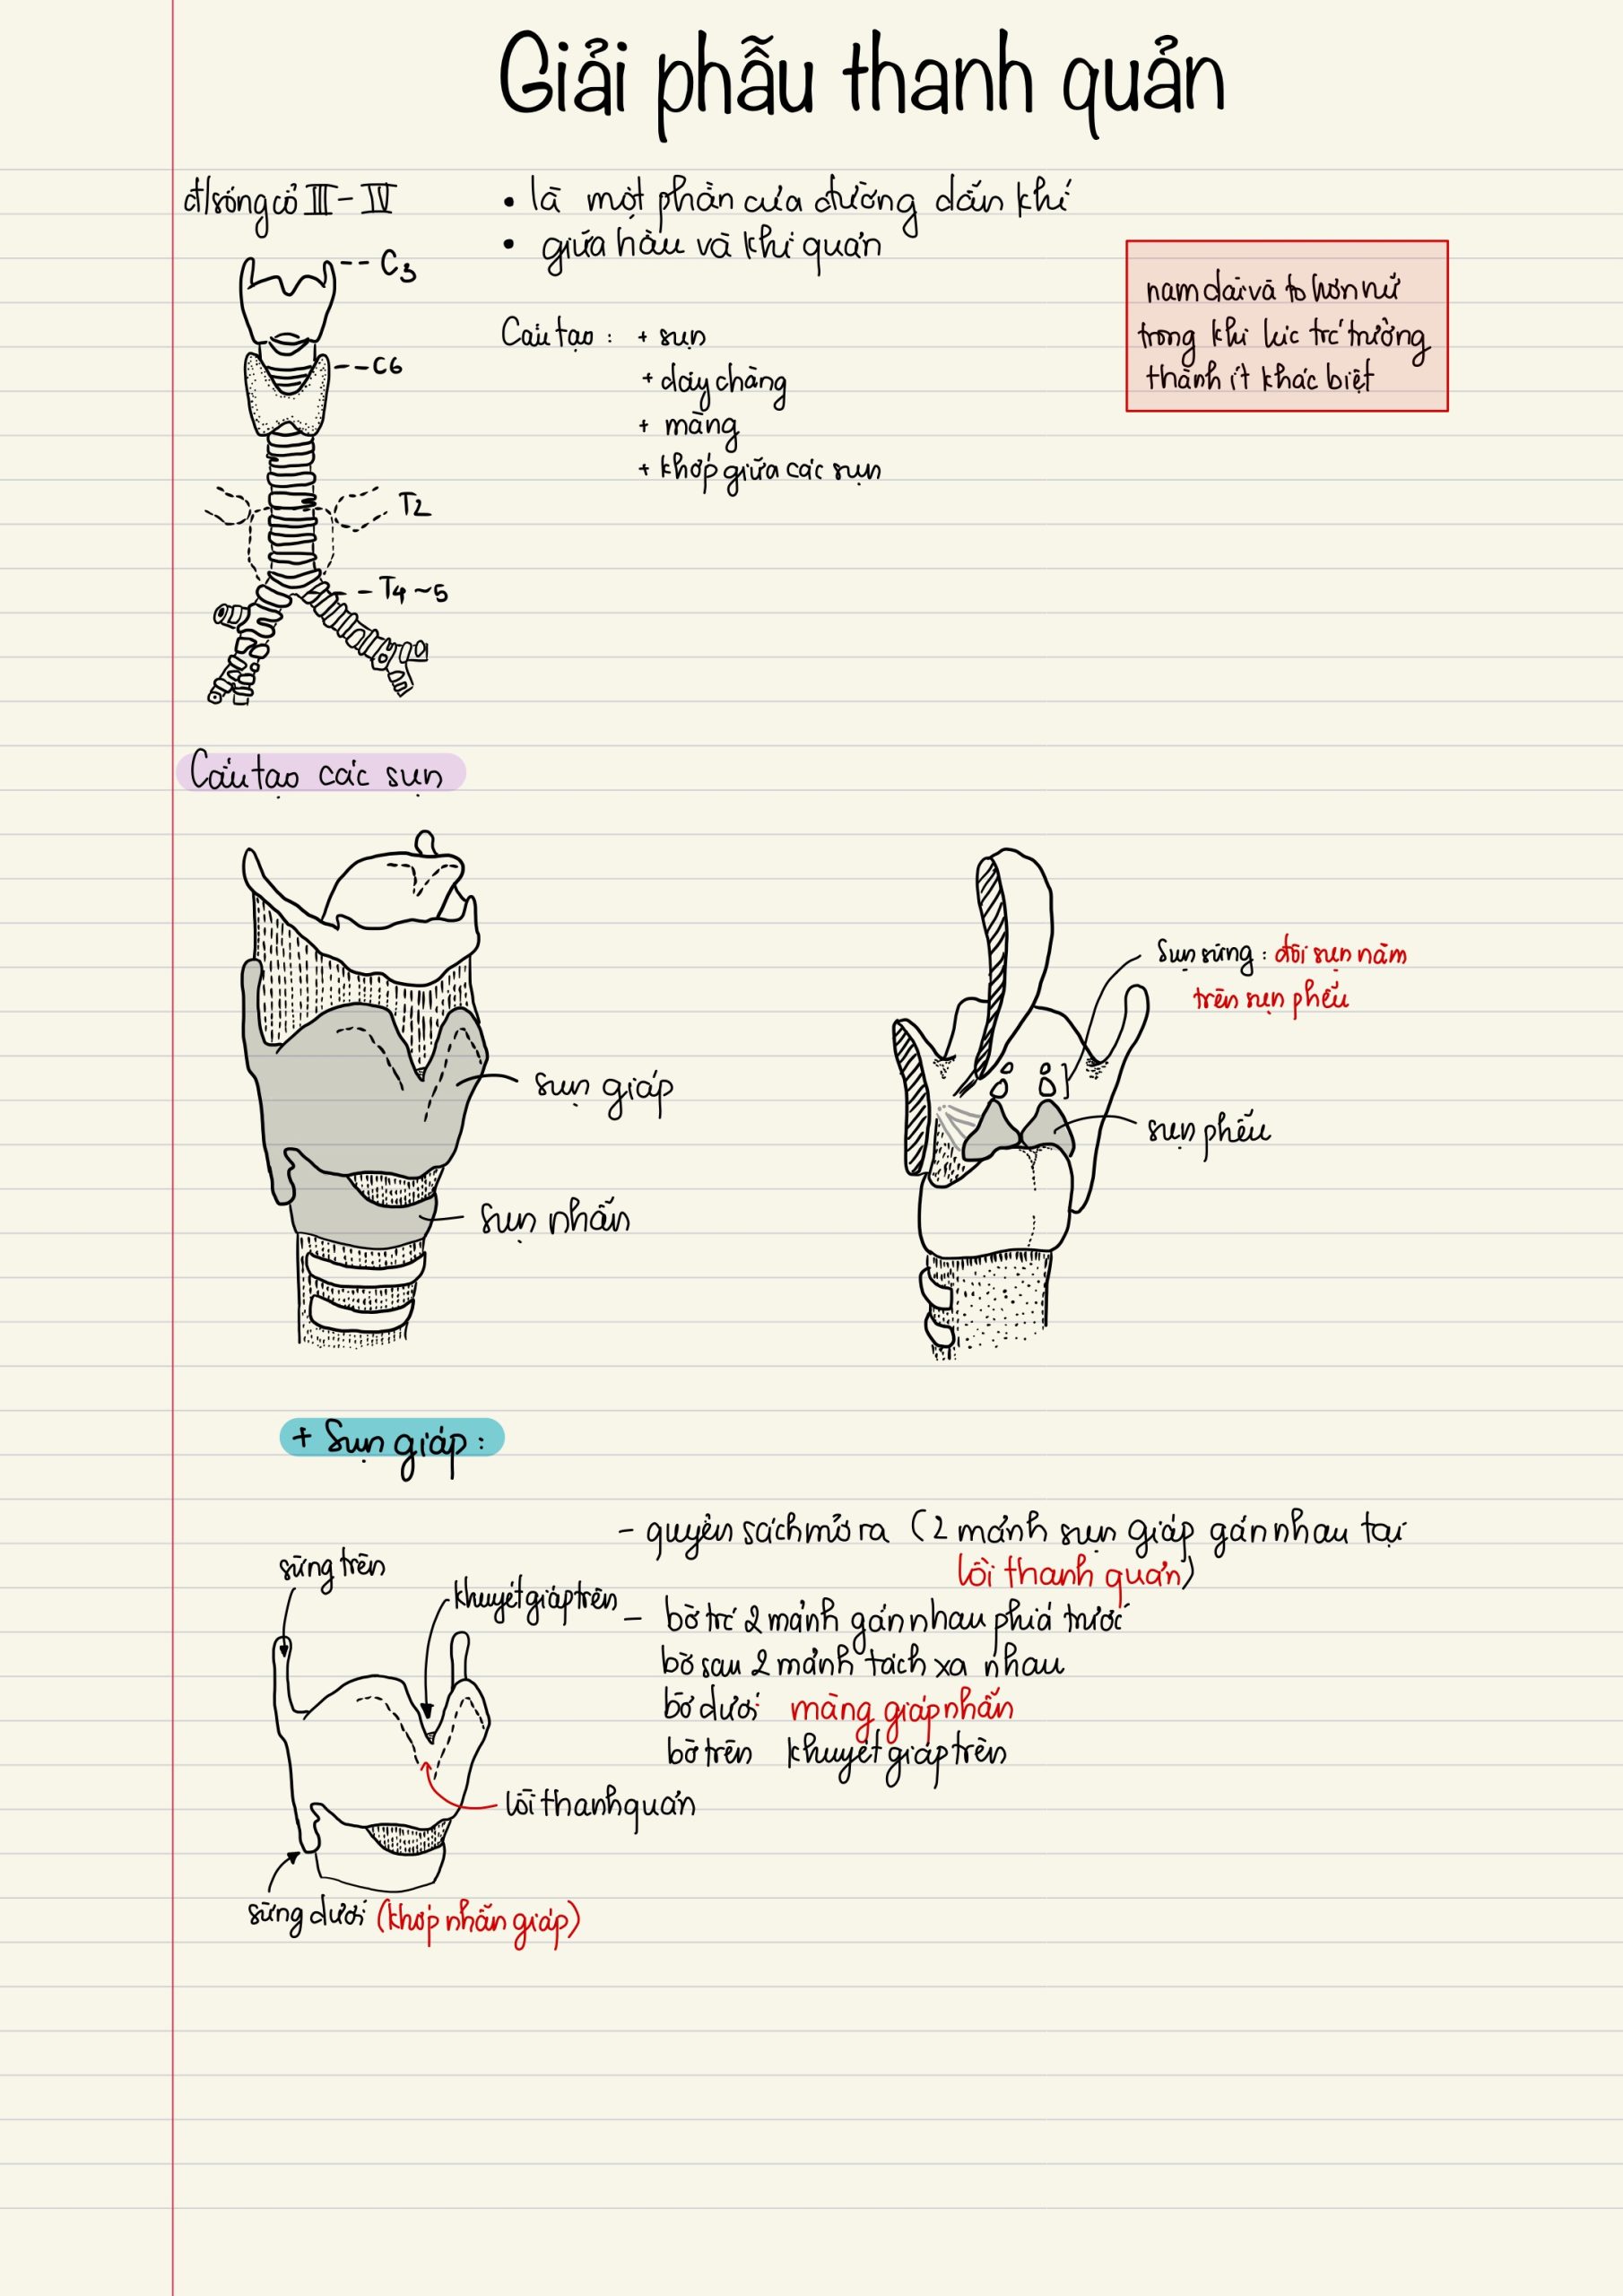 Giải phẫu thanh quản
đ/sống cổ III - IV
• là một phần của đường dẫn khí
• giữa hầu và khí quản
C3
C6
T2
T4 ~ 5
Cấu tạo : + sụn
+ dây chằng
+ màng
+ khớp giữa các sụn
nam dài và to hơn nữ
trong khi lúc trc trưởng
thành ít khác biệt
Cấu tạo các sụn
sụn giáp
sụn nhẫn
Sụn sừng : đôi sụn nằm
trên sụn phễu
sụn phễu
+ Sụn giáp :
- quyển sách mở ra (2 mảnh sụn giáp gắn nhau tại
lồi thanh quản)
- bờ trc 2 mảnh gắn nhau phía trước
bờ sau 2 mảnh tách xa nhau
bờ dưới màng giáp nhẫn
bờ trên khuyết giáp trên
sừng trên
khuyết giáp trên
lồi thanh quản
sừng dưới (khớp nhẫn giáp)